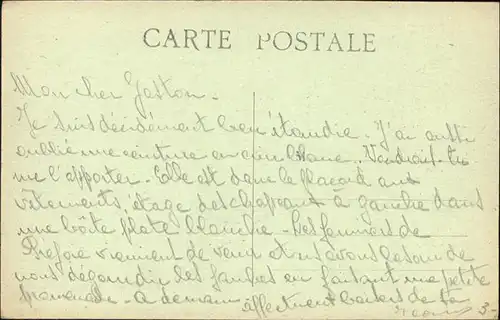 CARTE POSTALE
Mon cher Gaston.
Je suis décidément bien étourdie. J'ai aussi
oublié une ceinture en cuir blanc. Voudrais-tu
me l'apporter. Elle est dans le placard aux
vêtements, étage des chapeaux à gauche dans
une boîte plate blanche - Les femmes de
viennent de venir et nous avons besoin de
nous dégourdir les jambes en faisant une petite
promenade - a demain affectueux baisers de ta
3